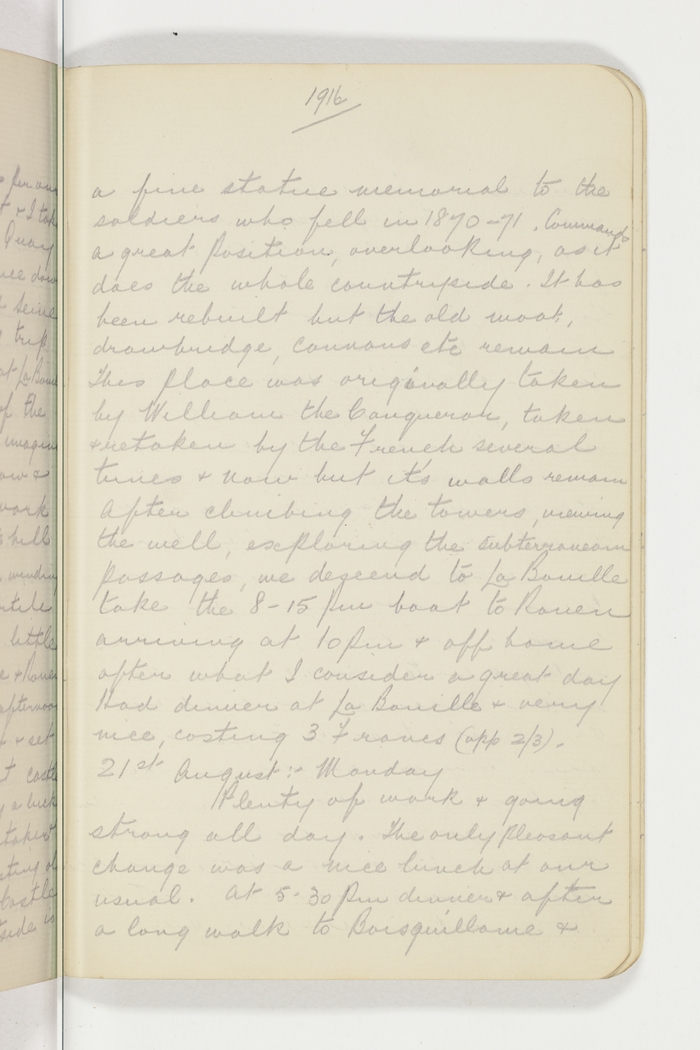 1916
a fine statue memorial to the
soldiers who fell in 1870-71. Commands
a great position, overlooking, as it
does the whole countryside. It has
been rebuilt but the old moat,
drawbridge, cannons etc remain
This place was originally taken
by William the Conqueror, taken
& retaken by the French several
times & now but it's walls remain
After climbing the towers, viewing
the well, exploring the subterranean
passages, we descend to La Bouille
take the 8-15 pm boat to Rouen
arriving at 10 pm & off home
after what I consider a great day
Had dinner at La Bouille & very
nice, costing 3 Francs (app 2/3).
21st August:- Monday
Plenty of work & going
strong all day. The only pleasant
change was a nice lunch at our
usual. At 5-30 pm dinner & after
a long walk to Boisguillame &